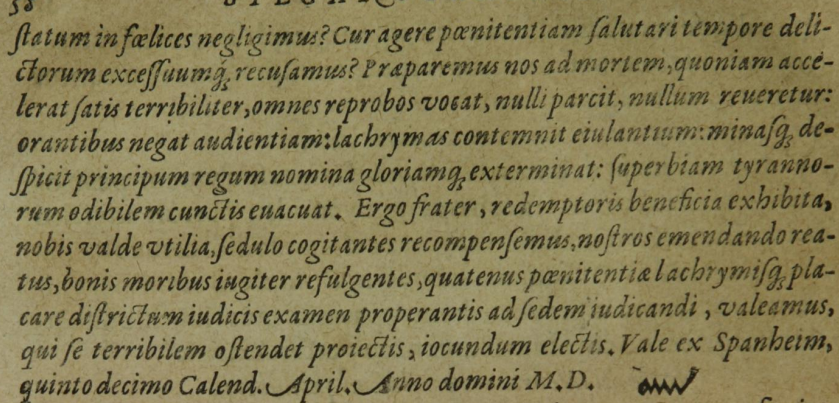 ſtatum infœlices negligimus? Cur agere pœnitentiam ſalutari tempore deli-
ctorum exceſſuumq́; recuſamus? Præparemus nos ad mortem, quoniam acce-
lerat ſatis terribiliter, omnes reprobos vocat, nulli parcit, nullum reueretur:
orantibus negat audientiam: lachrymas contemnit eiulantium: minaſq́; de-
ſpicit principum regum nomina gloriamq́; exterminat: ſuperbiam tyranno-
rum odibilem cunctis euacuat. Ergo frater, redemptoris beneficia exhibita,
nobis valde vtilia, ſedulo cogitantes recompenſemus, noſtros emendando rea-
tus, bonis moribus iugiter refulgentes, quatenus pœnitentiæ lachrymiſq́; pla-
care diſtrictum iudicis examen properantis ad ſedem iudicandi, valeamus,
qui ſe terribilem oſtendet proiectis, iocundum electis. Vale ex Spanheim,
quinto decimo Calend. April. Anno domini M.D.